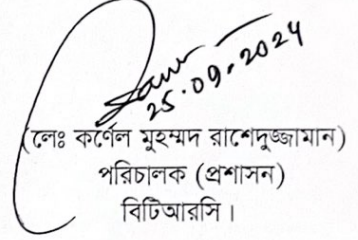 25.09.2024
(লেঃ কর্ণেল মুহম্মদ রাশেদুজ্জামান)
পরিচালক (প্রশাসন)
বিটিআরসি।